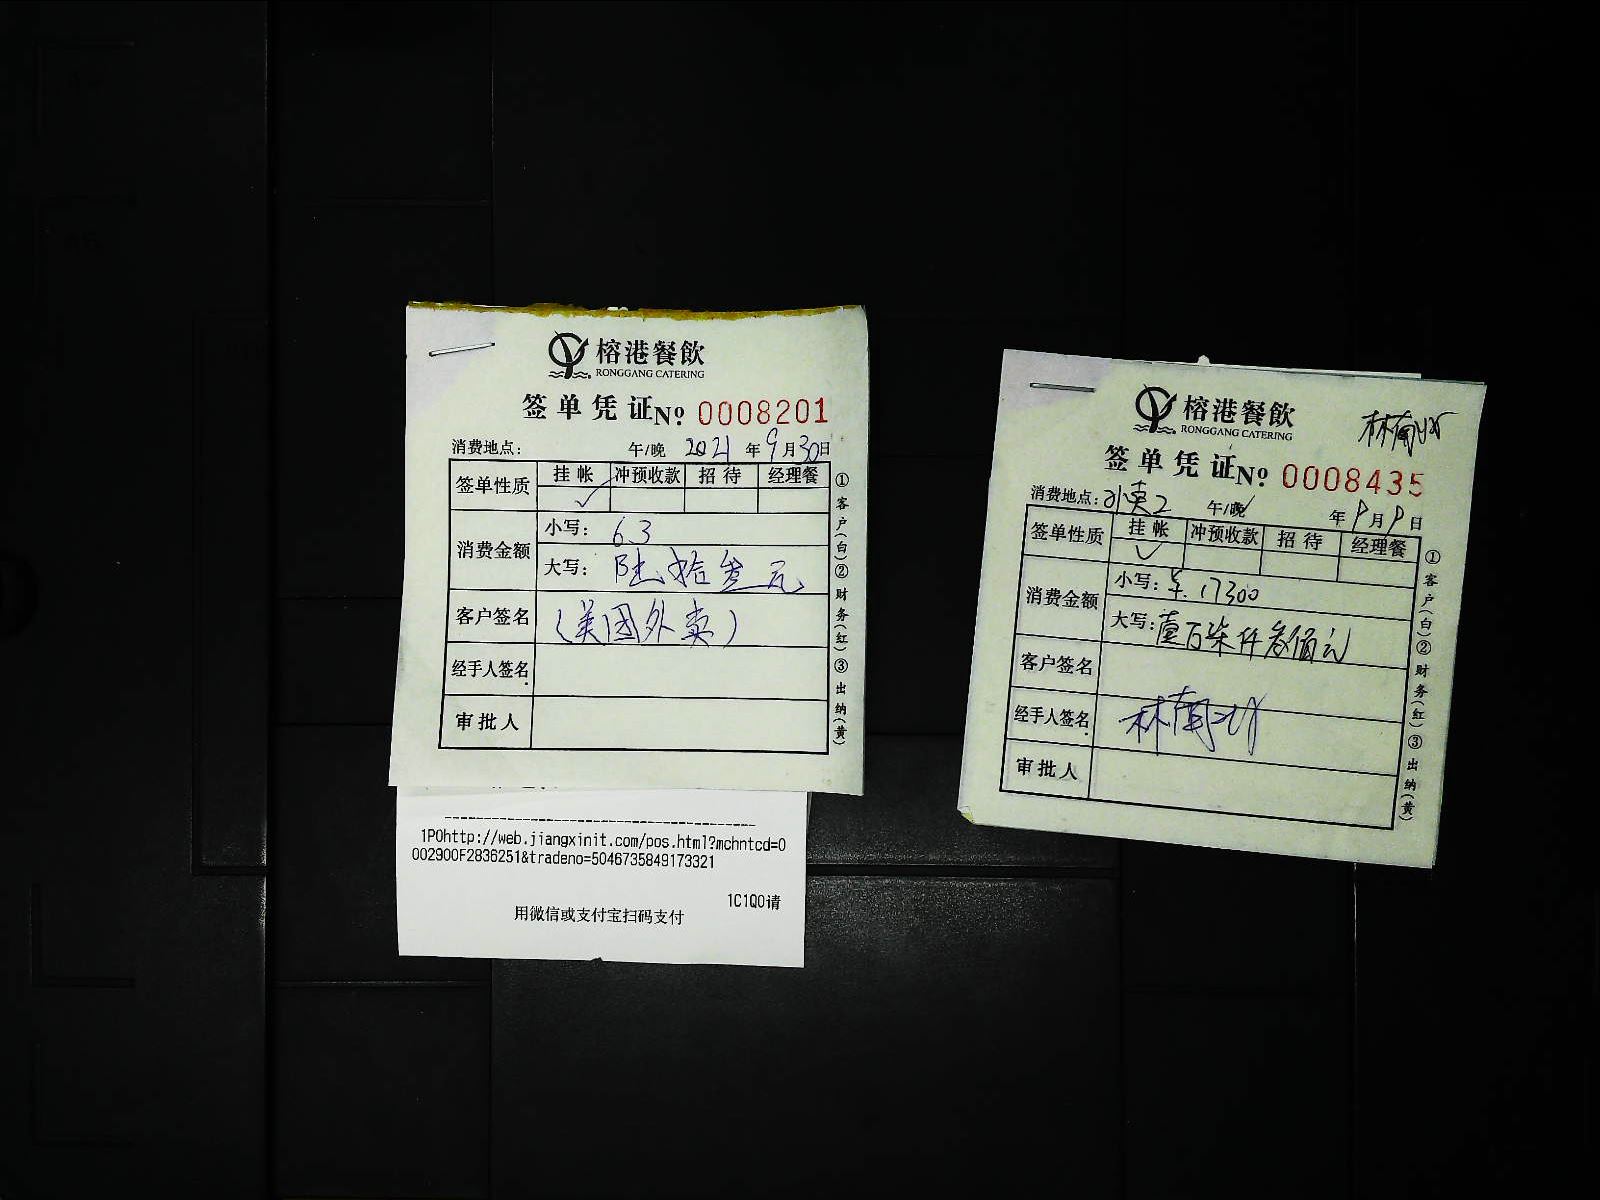 榕港餐飲
RONGGANG CATERING
签单凭证 № 0008201
消费地点： 午/晚 2021 年 9 月 30 日
签单性质 挂帐 冲预收款 招待 经理餐
✓
消费金额
小写： 63
大写： 陆拾叁元
客户签名 （美国外卖）
经手人签名
审批人
①客户(白)②财务(红)③出纳(黄)
1P0http://web.jiangxinit.com/pos.html?mchntcd=0
002900F2836251&tradeno=5046735849173321
1C1Q0请
用微信或支付宝扫码支付
榕港餐飲
RONGGANG CATERING
签单凭证 № 0008435
消费地点： 午/晚 年 9 月 9 日
签单性质 挂帐 冲预收款 招待 经理餐
✓
消费金额
小写： 17300
大写： 壹万柒仟叁佰元
客户签名
经手人签名
审批人
①客户(白)②财务(红)③出纳(黄)